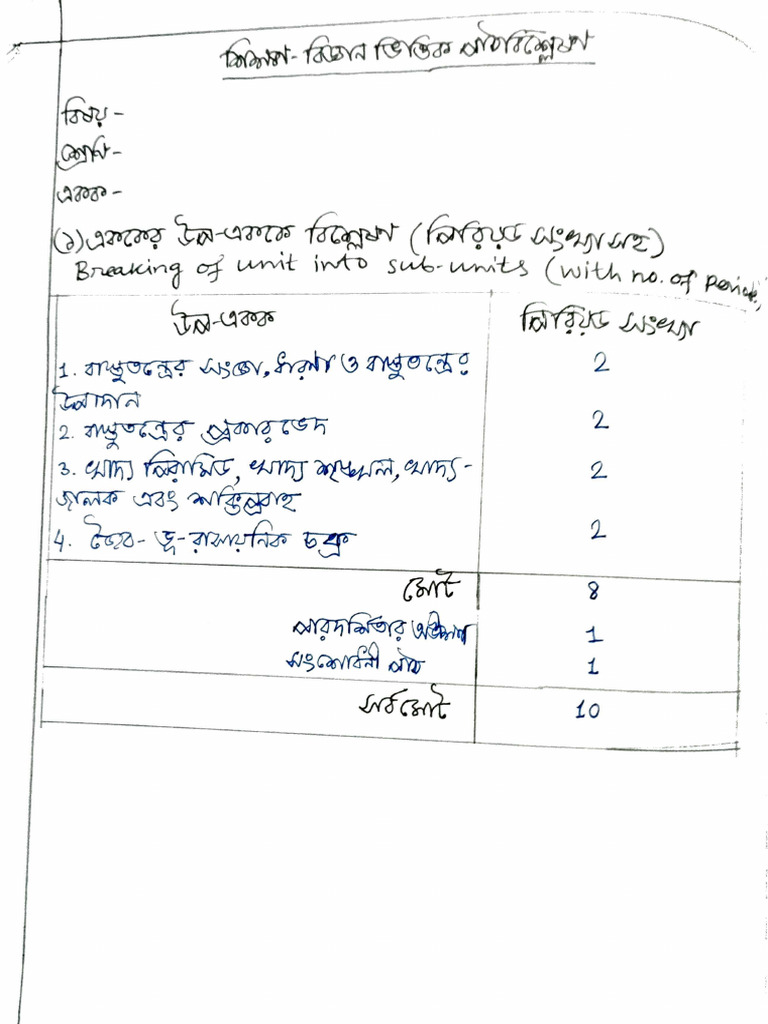 শিক্ষণ-বিজ্ঞান ভিত্তিক পাঠবিশ্লেষণ
বিষয় -
শ্রেণি -
একক -
(১) এককের উপ-এককে বিশ্লেষণ (পিরিয়ড সংখ্যাসহ)
Breaking of unit into sub-units (with no. of period)
উপ-একক পিরিয়ড সংখ্যা
1. বাস্তুতন্ত্রের সংজ্ঞা, ধারণা ও বাস্তুতন্ত্রের 2
উপাদান
2. বাস্তুতন্ত্রের প্রকারভেদ 2
3. খাদ্য পিরামিড, খাদ্য শৃঙ্খল, খাদ্য- 2
জালক এবং শক্তিপ্রবাহ
4. জৈব-ভূ-রাসায়নিক চক্র 2
মোট 8
পারদর্শিতার অভীক্ষা 1
সংশোধনী পাঠ 1
সর্বমোট 10